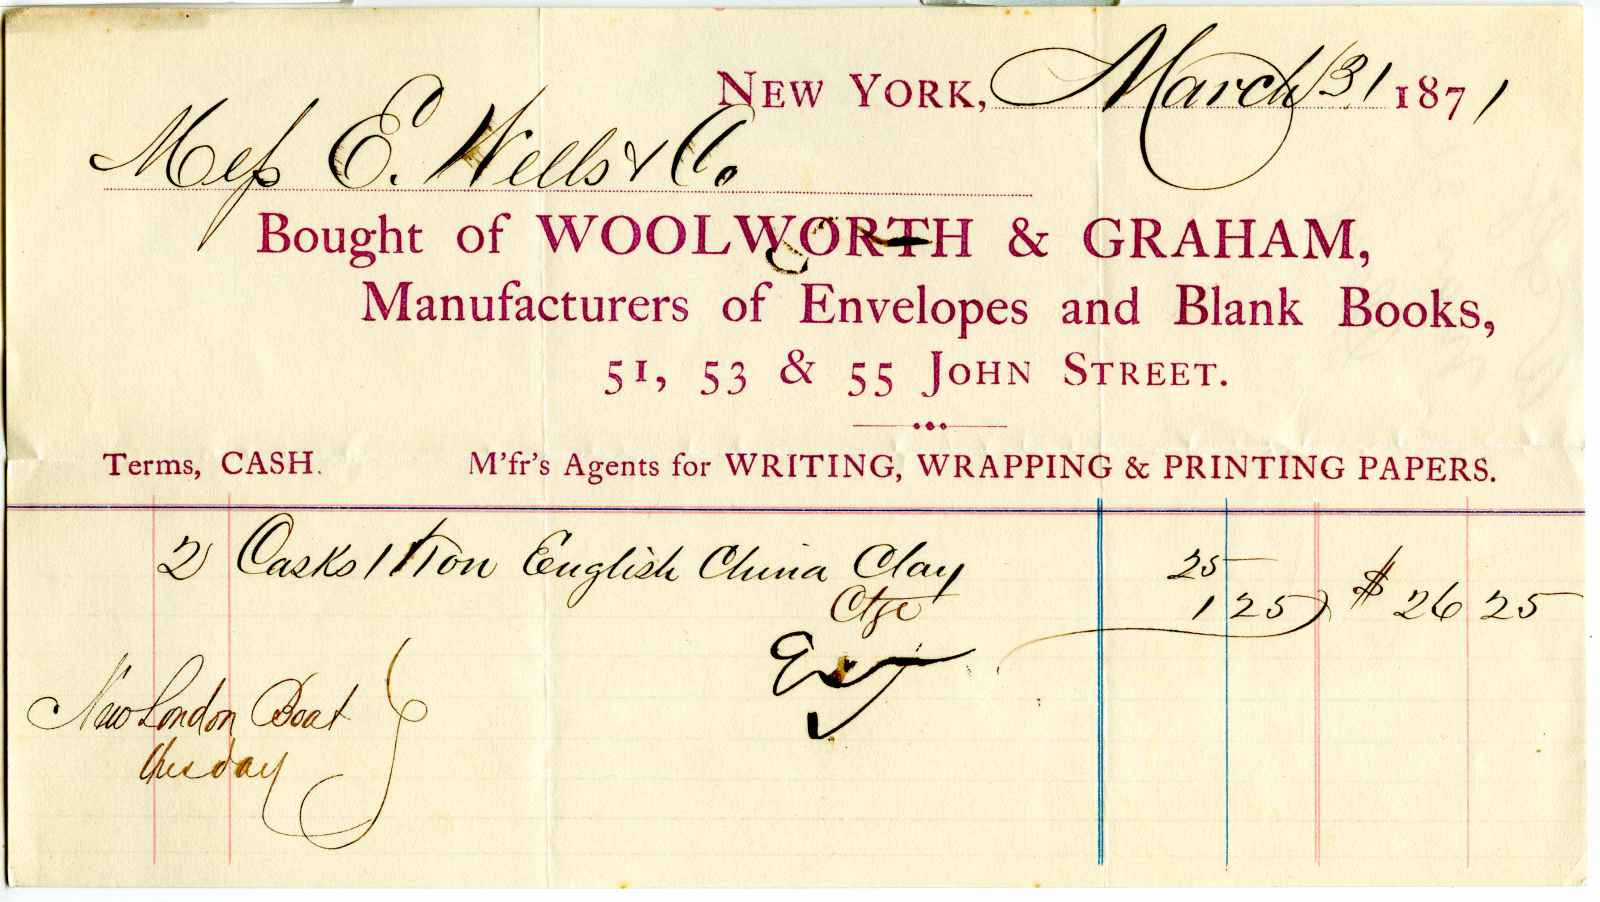 NEW YORK, March 31 1871
Mess E. Wells & Co.
Bought of WOOLWORTH & GRAHAM,
Manufacturers of Envelopes and Blank Books,
51, 53 & 55 JOHN STREET.
Terms, CASH. M'fr's Agents for WRITING, WRAPPING & PRINTING PAPERS.
2 Casks 1 Ton English China Clay 25
Ctge 1 25 $ 26 25
New London Boat
Tuesday